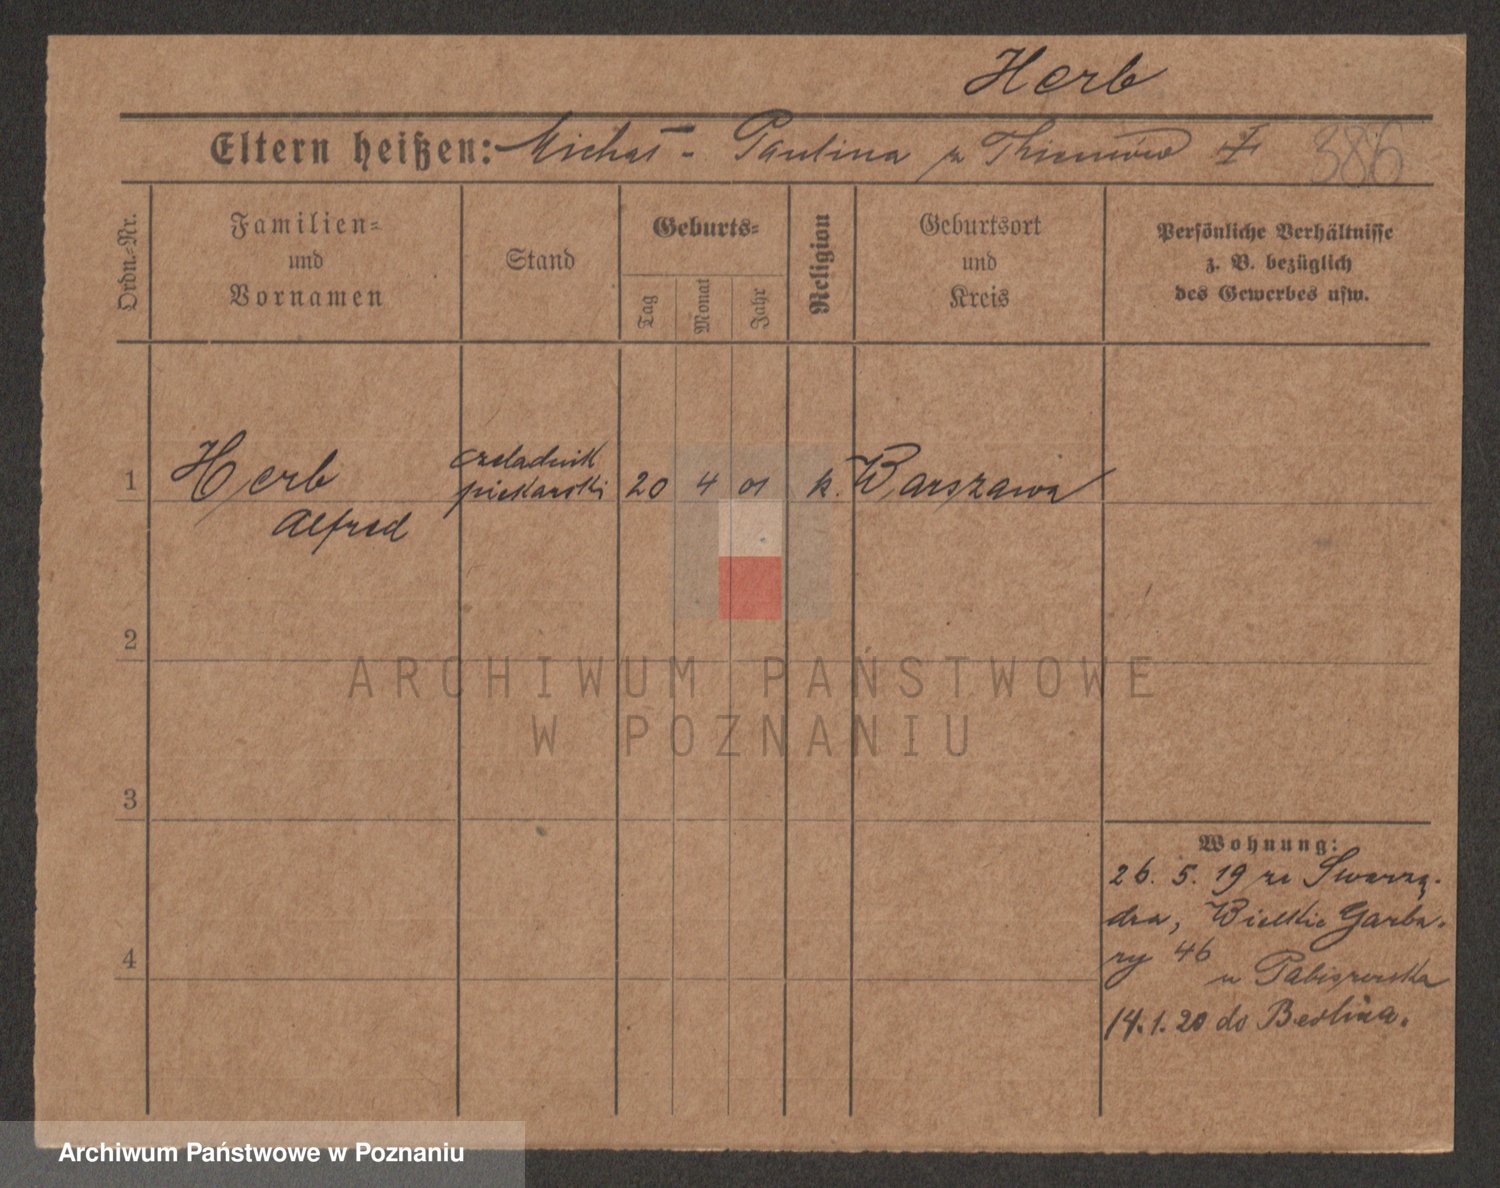 Herb
Eltern heißen: Michał - Paulina z Thiemów
386
Ordn.-Nr.
Familien-
und
Vornamen
Stand
Geburts-
Tag
Monat
Jahr
Religion
Geburtsort
und
Kreis
Persönliche Verhältnisse
z. B. bezüglich
des Gewerbes usw.
1
Herb
Alfred
czeladnik
piekarski
20
4
01
k.
Warszawa
2
3
4
Wohnung:
26. 5. 19 ze Swarzę-
dza, Wielkie Garba-
ry 46
14.1.20 do Berlina.
ARCHIWUM PAŃSTWOWE
W POZNANIU
Archiwum Państwowe w Poznaniu